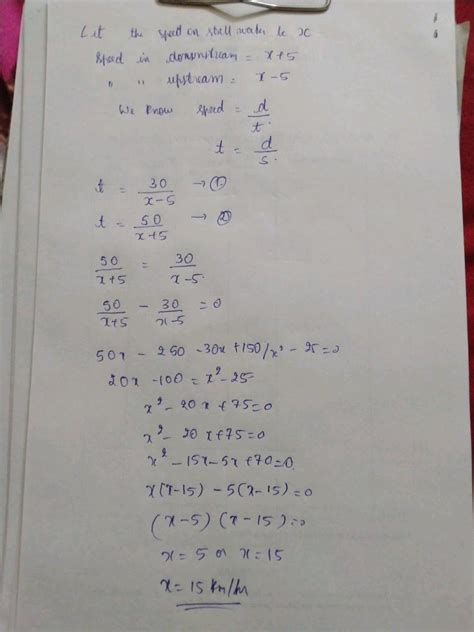 Let the speed on still water be x
Speed in downstream = x+5
" " upstream = x-5
We know speed = d/t
t = d/s.
t = 30/x-5 → ①
t = 50/x+5 → ②
50/x+5 = 30/x-5
50/x+5 - 30/x-5 = 0
50x - 250 - 30x + 150/x² - 25 = 0
20x - 100 = x² - 25
x² - 20x + 75 = 0
x² - 20x + 75 = 0
x² - 15x - 5x + 70 = 0
x(x-15) - 5(x-15) = 0
(x-5) (x-15) = 0
x = 5 or x = 15
x = 15 km/hr